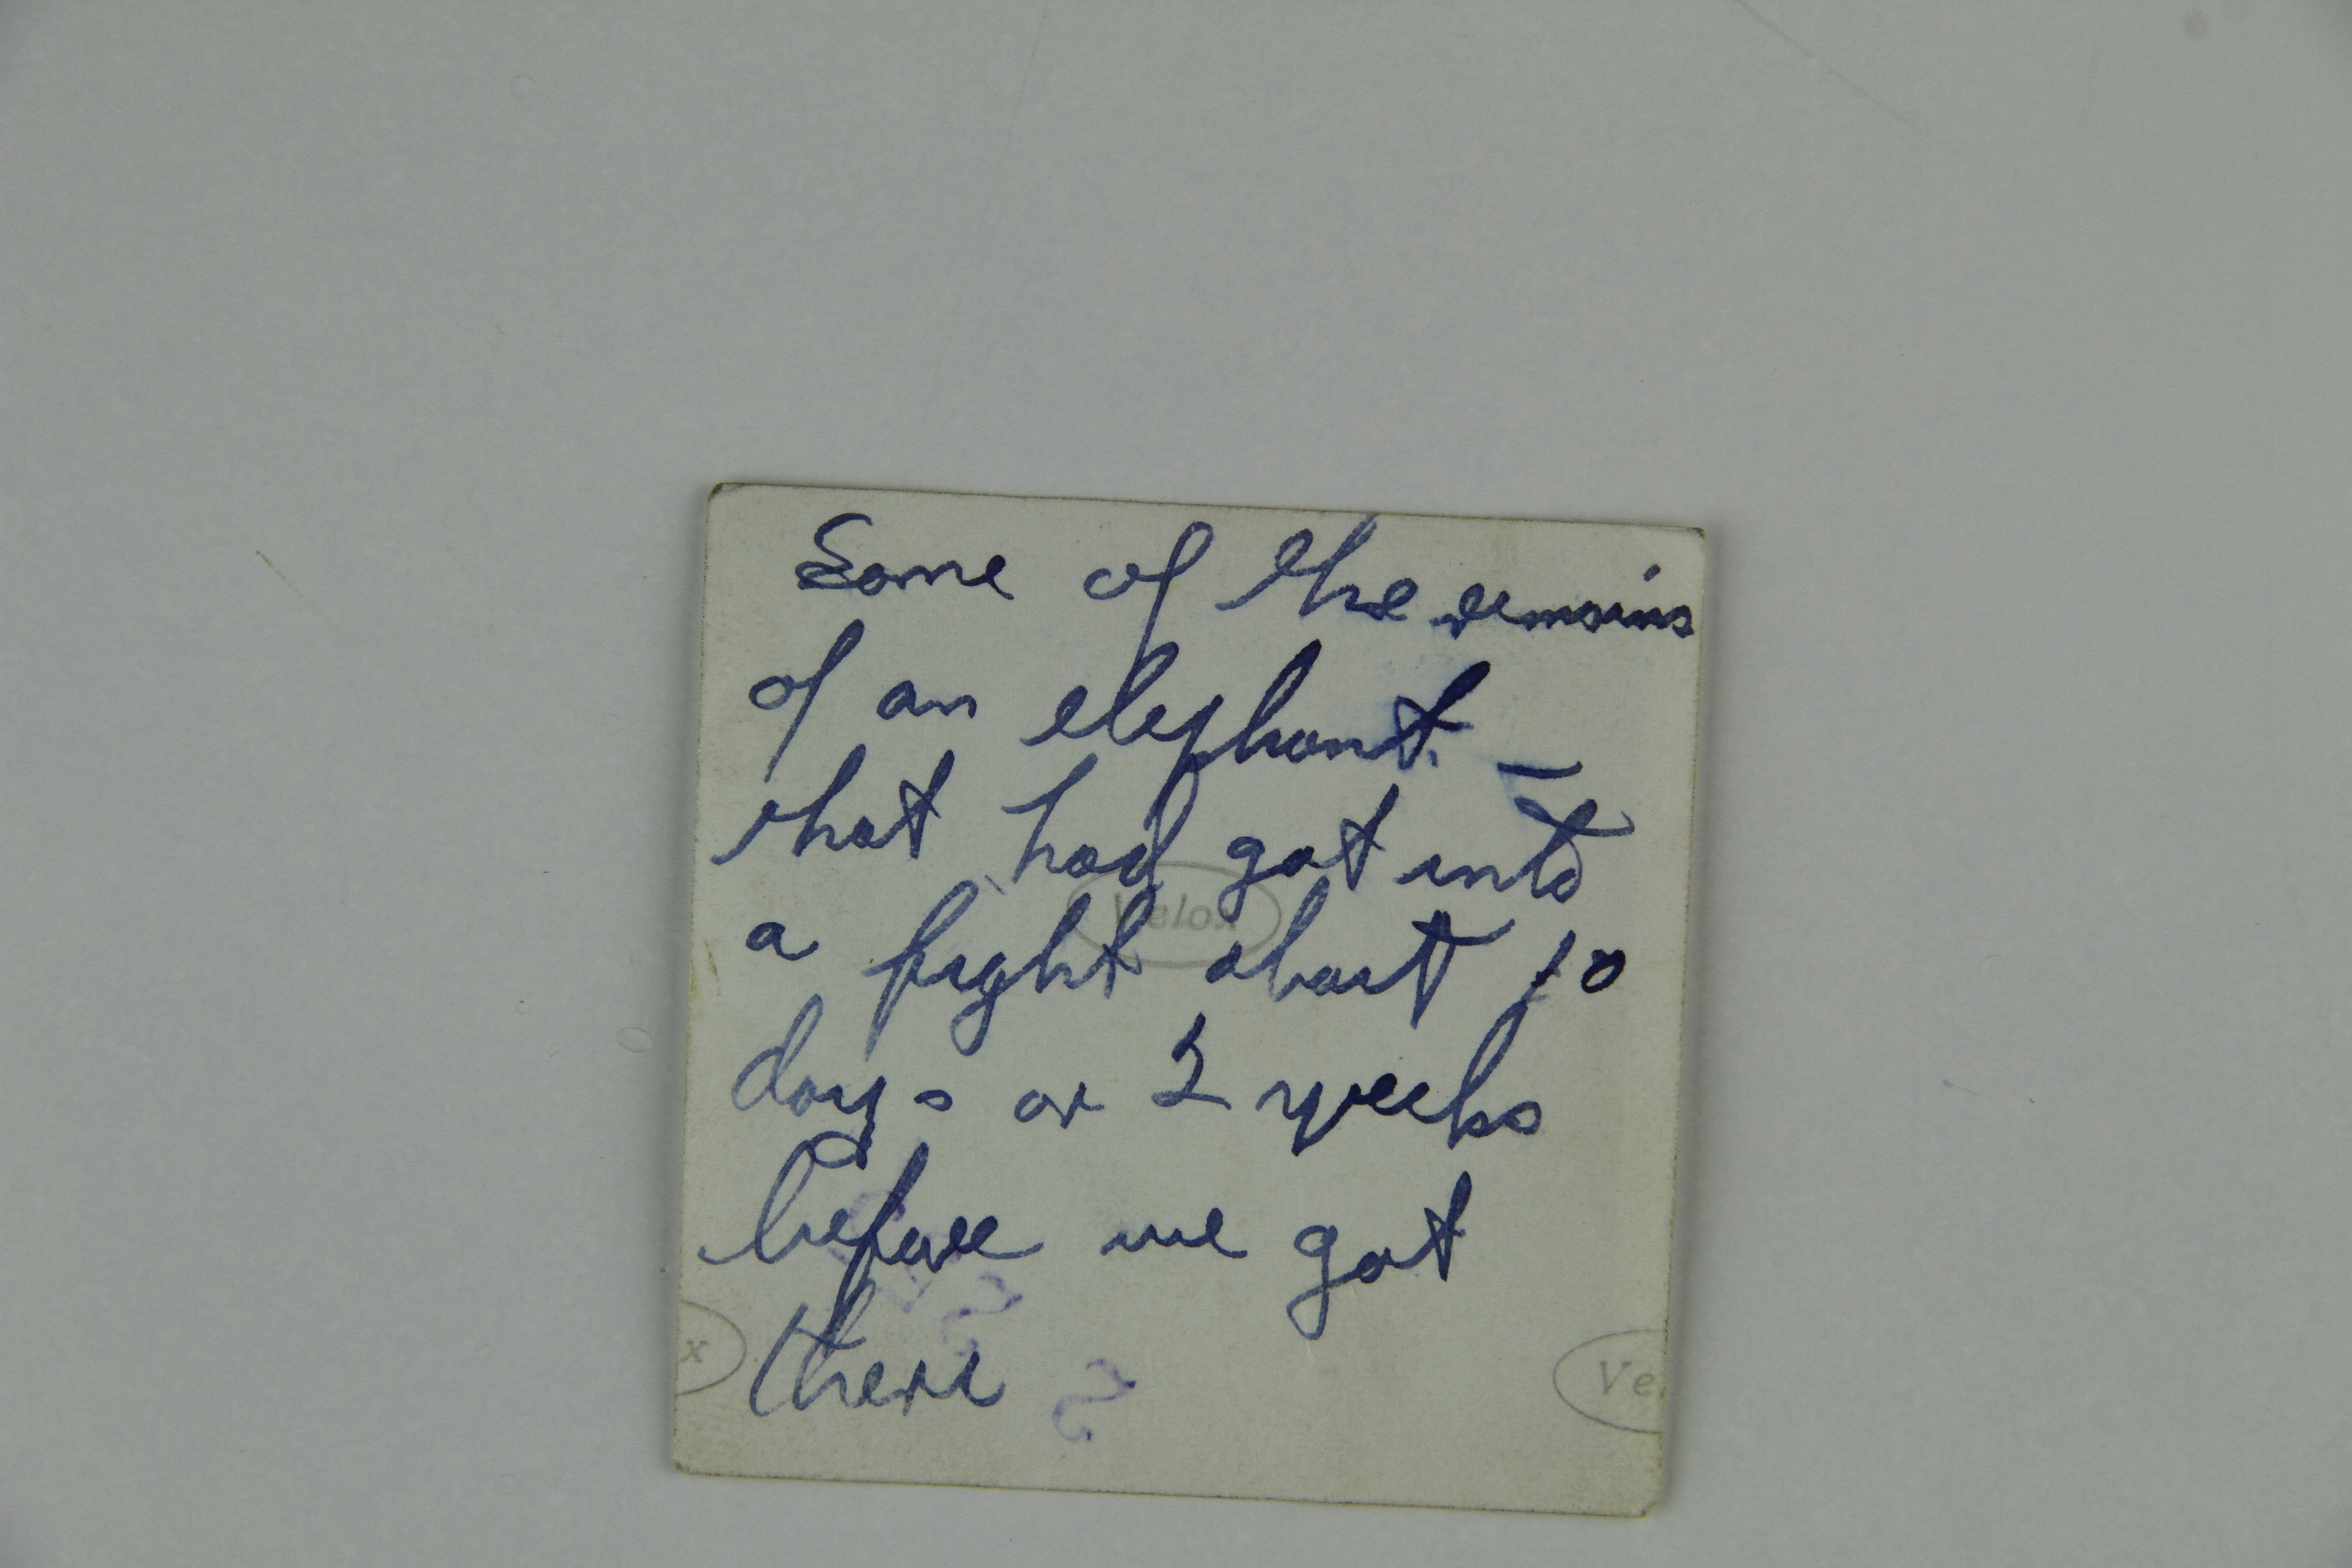 Some of the remains
of an elephant. —
that had got into
Velox
a fight about 10
days or 2 weeks
before we got
there
x
Ve